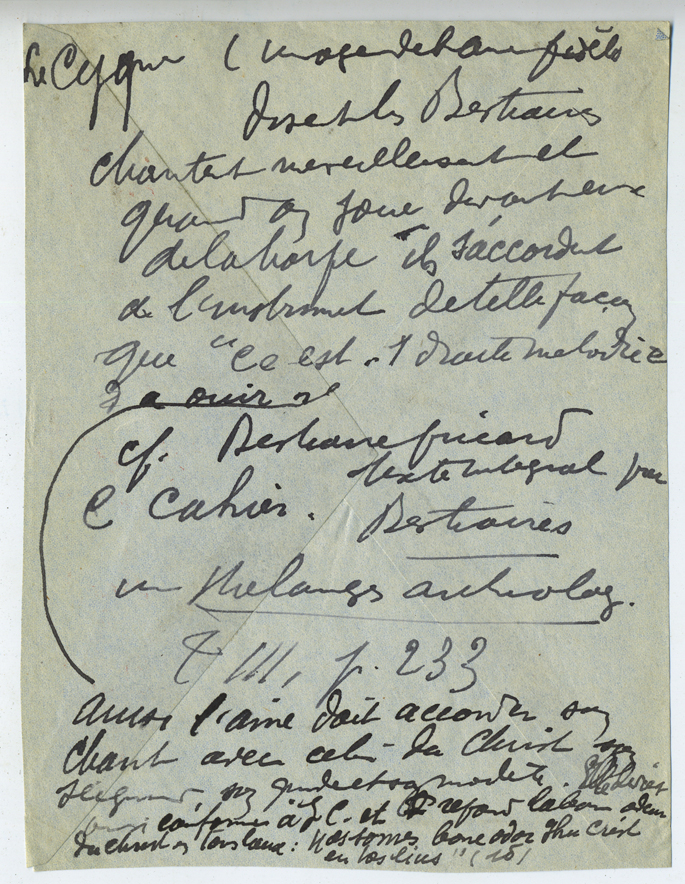 Le Cygne (image de l'âme fidèle
disent les Bestiaires
chantent merveilleusement et
quand on joue devant eux
de la harpe ils s'accordent
à l'instrument de telle façon
que "ce est . 1 droite melodie
a ouir
cf. Bestiaire picard
texte intégral par
C Cahier. Bestiaires
in Mélanges archéolog.
t III, p. 233
ainsi l'âme doit accorder son
chant avec celui du Christ son
Seigneur,
conforme à J C. et
du Christ en tous lieux : "Nos somes bone odor Jhu Crist
en tos lius" (15)